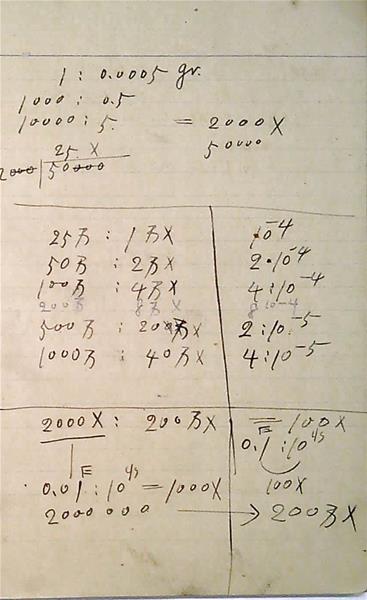 1 : 0.0005 gr.
1000 : 0.5
10000 : 5. = 2000 X
50000
25. X
2000 50000
25万 : 1万X 10-4
50万 : 2万X 2•10-4
100万 : 4万X 4:10-4
200万 8万X 8 10-4
500万 : 20万X 2:10-5
1000万 : 40万X 4:10-5
2000X : 200万X = 100X
E 0.1 : 10
E 0.01 : 10 = 1000X 100X
2000 000 → 200万X